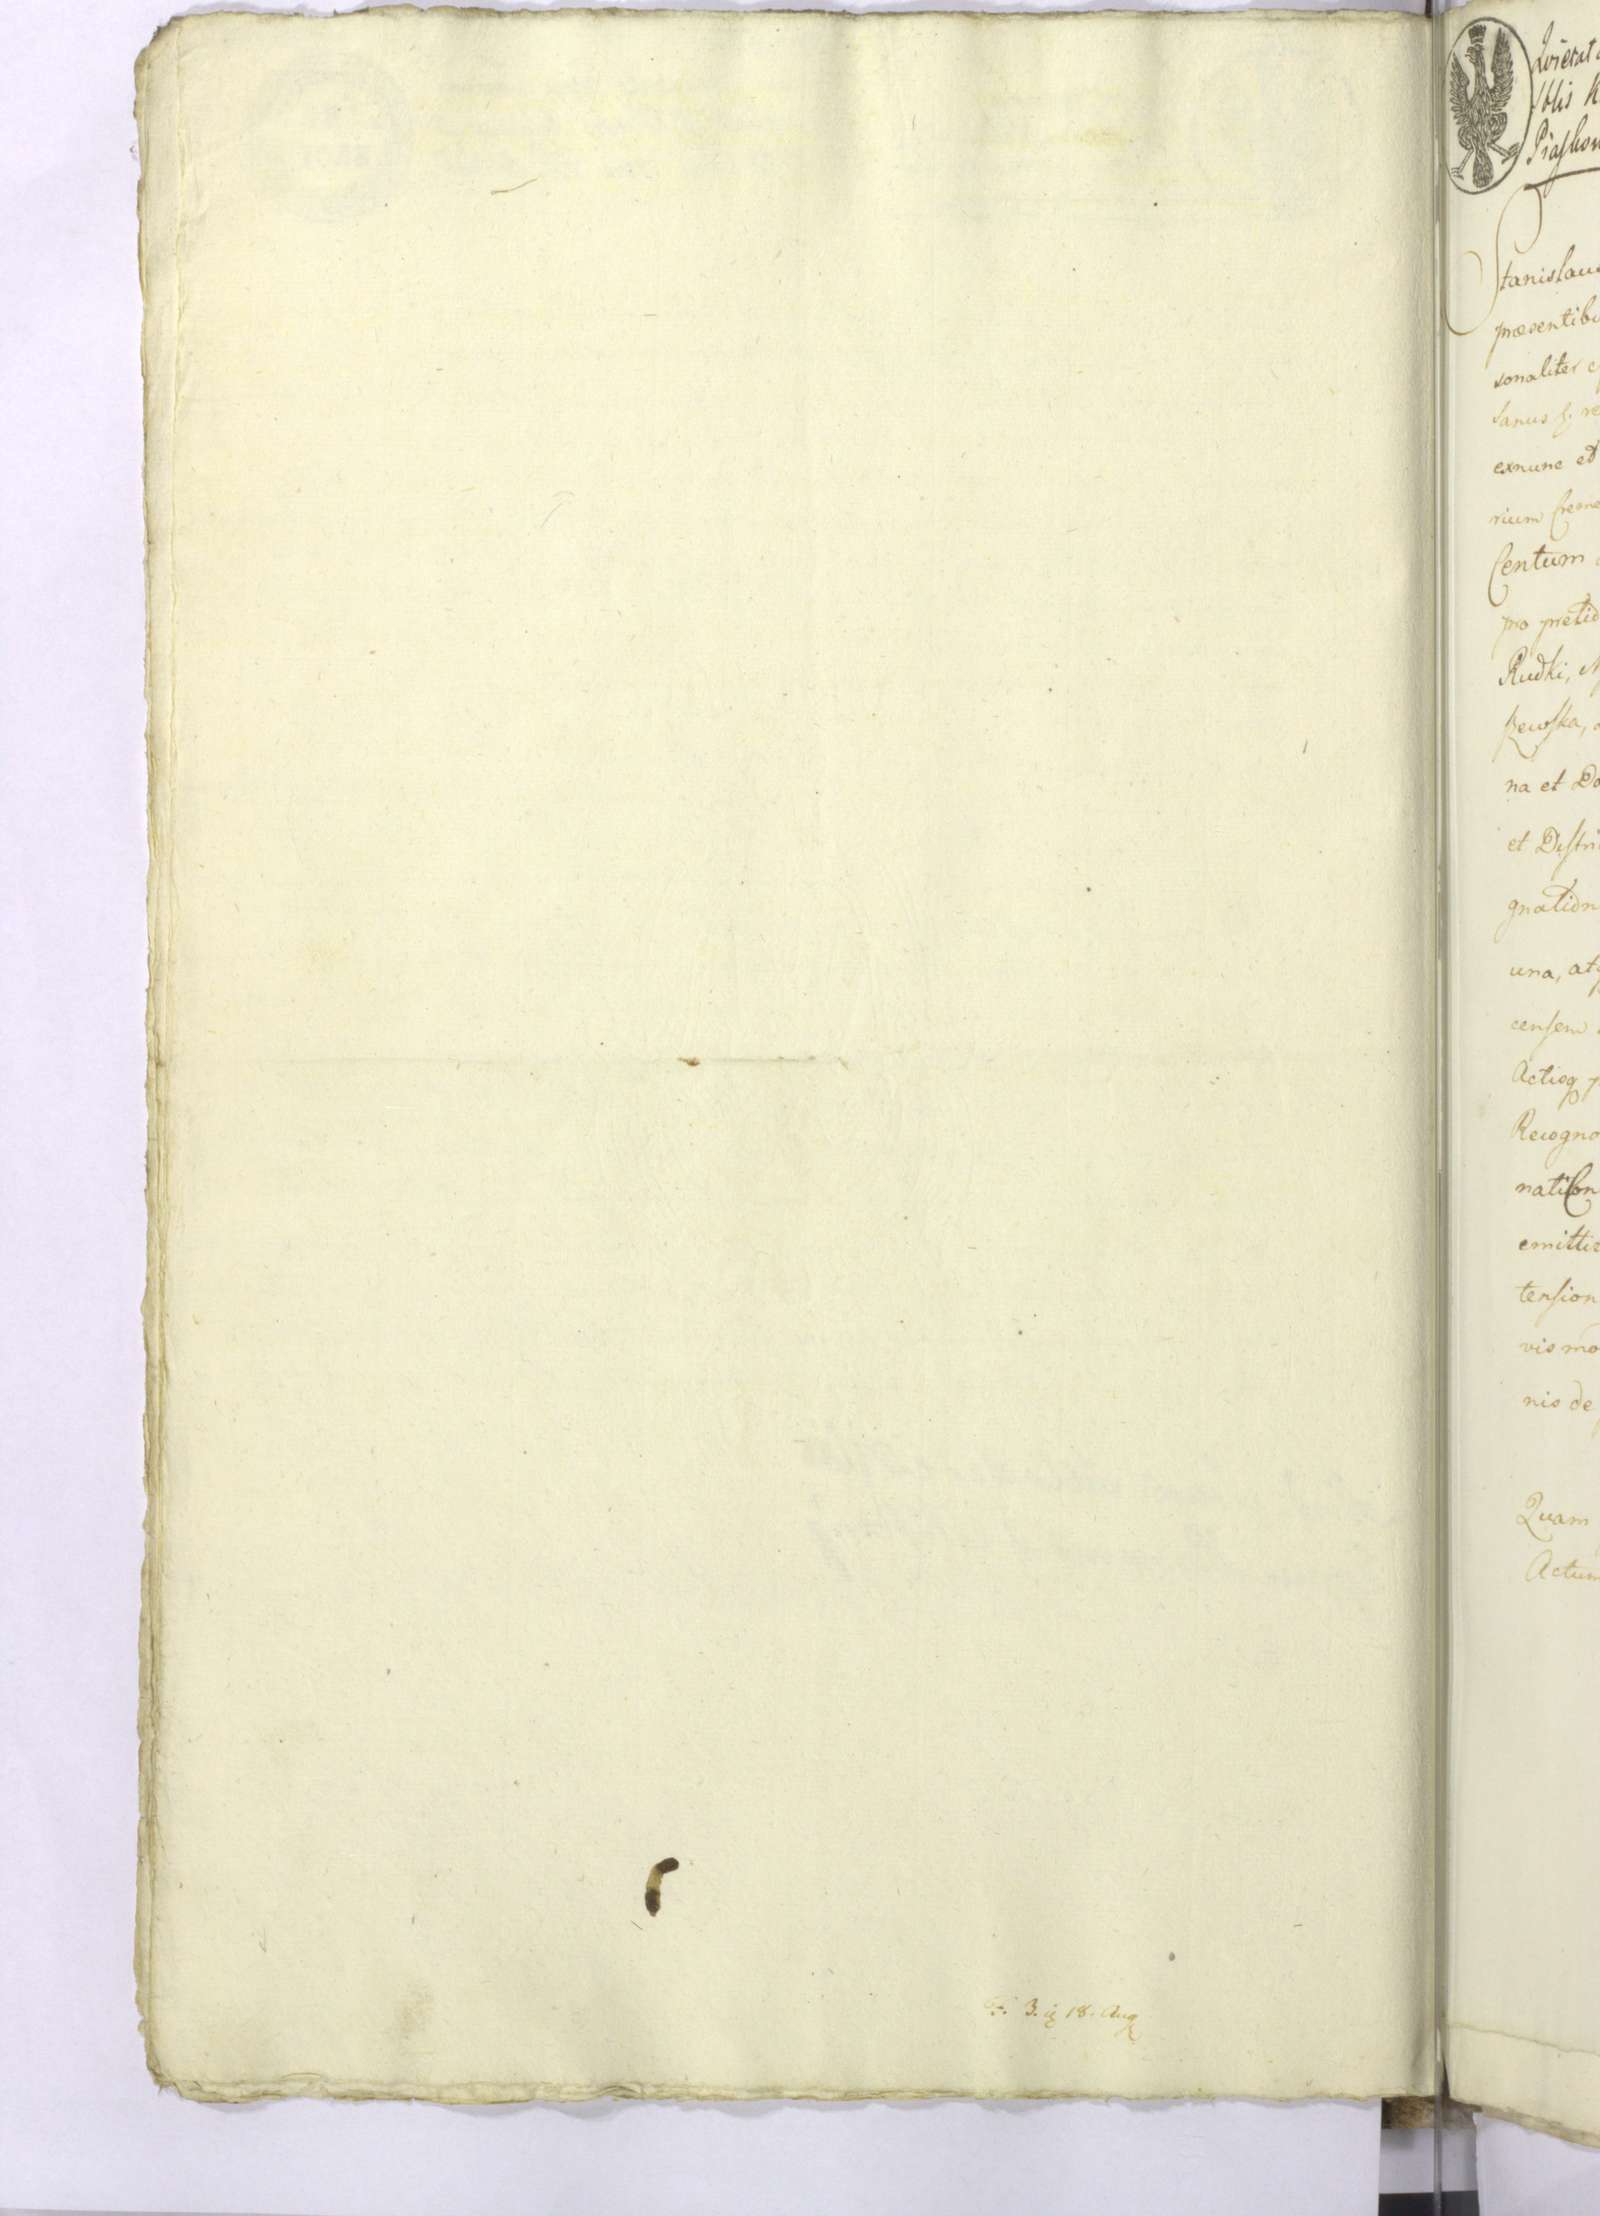 F. 3. iz 18. Aug
Quietat
sblis K
Piaskow
Stanislaus
præsentibu
sonaliter c
sanus & re
exnunc et
rium Creme
Centum
pro pretio
Rudki, N
szewska, a
na et Do
et Distri
gnation
una, atq
censem
Actisq p
Recogno
nation
emittis
tension
vis mo
nis de
Quam
Actum